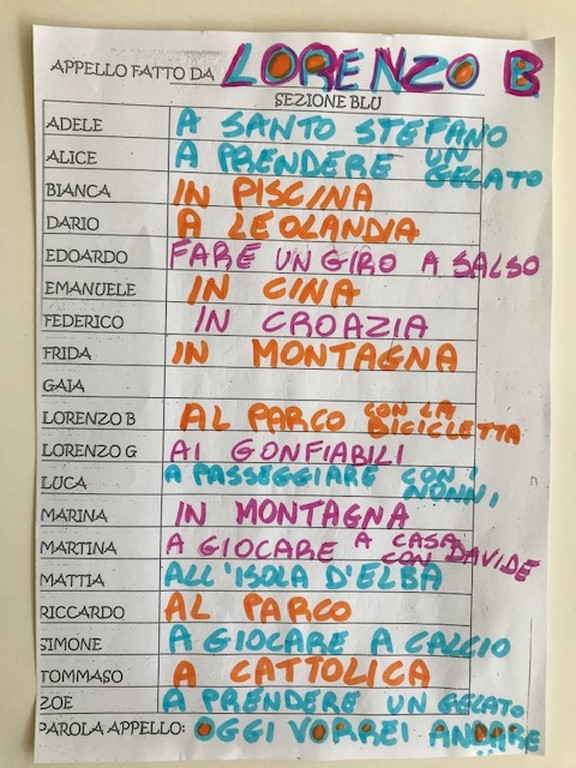 APPELLO FATTO DA LORENZO B
SEZIONE BLU
ADELE A SANTO STEFANO
ALICE A PRENDERE UN GELATO
BIANCA IN PISCINA
DARIO A LEOLANDIA
EDOARDO FARE UN GIRO A SALSO
EMANUELE IN CINA
FEDERICO IN CROAZIA
FRIDA IN MONTAGNA
GAIA
LORENZO B AL PARCO CON LA BICICLETTA
LORENZO G AI GONFIABILI
LUCA A PASSEGGIARE CON I NONNI,
MARINA IN MONTAGNA
MARTINA A GIOCARE A CASA CON DAVIDE
MATTIA ALL'ISOLA D'ELBA
RICCARDO AL PARCO
SIMONE A GIOCARE A CALCIO
TOMMASO A CATTOLICA
ZOE A PRENDERE UN GELATO
PAROLA APPELLO: OGGI VORREI ANDARE